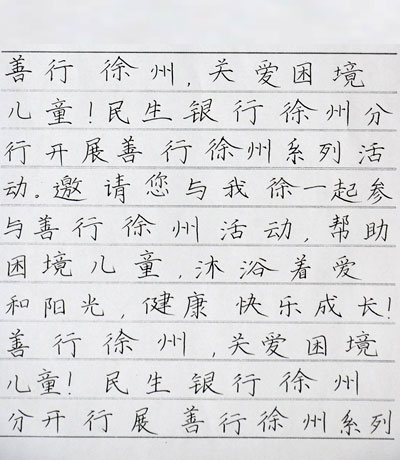 善行徐州,关爱困境
儿童!民生银行徐州分
行开展善行徐州系列活
动。邀请您与我徐一起参
与善行徐州活动,帮助
困境儿童,沐浴着爱
和阳光,健康快乐成长!
善行徐州,关爱困境
儿童!民生银行徐州
分开行展善行徐州系列